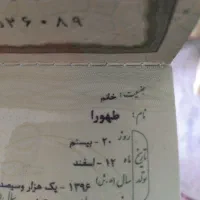 ۵۳۶۰۸۹
جنسیت: خانم
نام: طهورا
روز ۲۰ - بیستم
تاریخ تولد
ماه ۱۲ - اسفند
سال (ه‍.ش) ۱۳۹۶ - یک هزار و سیصد